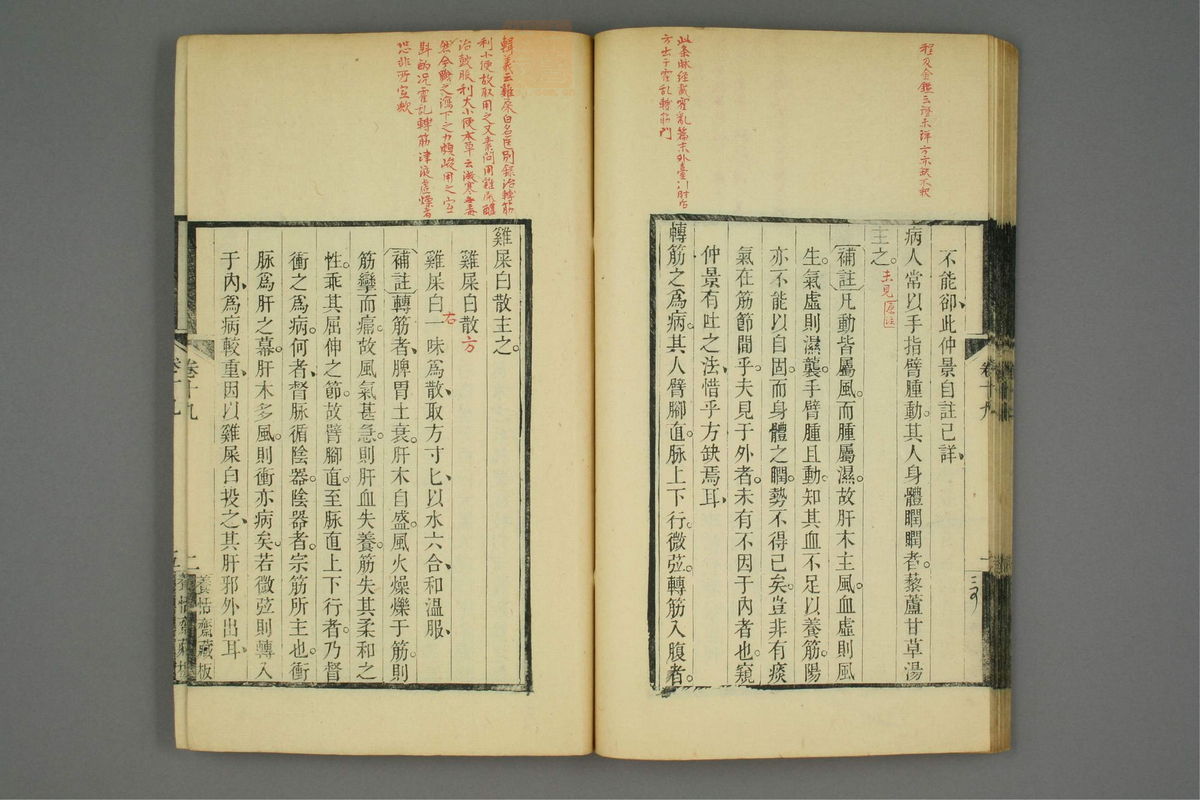 程及金鑑云證未詳方亦缺不釈
不能卻此仲景自註已詳
病人常以手指臂腫動其人身體瞤瞤者藜蘆甘草湯
主之
未見
補註凡動皆屬風而腫屬濕故肝木主風血虛則風
生氣虛則濕襲手臂腫且動知其血不足以養筋陽
亦不能以自固而身體之瞤勢不得已矣豈非有痰
氣在筋節間乎夫見于外者未有不因于內者也窺
仲景有吐之法惜乎方缺焉耳
此条脉経載霍乱篇末外臺
方出于霍乱轉筋門
轉筋之為病其人臂腳直脉上下行微弦轉筋入腹者
卷十九
一
輯義云雞屎白名医別録治轉筋
利小便故取用之又素問用雞屎醴
治鼓脹利大小便本草云微寒無毒
然今驗之瀉下之力頗峻用之宜
斟酌況霍乱轉筋津液虛燥者
恐非所宜歟
雞屎白散主之
雞屎白散方
右
雞屎白一味為散取方寸匕以水六合和溫服
補註轉筋者脾胃土衰肝木自盛風火燥爍于筋則
筋攣而痛故風氣甚急則肝血失養筋失其柔和之
性乖其屈伸之節故臂腳直至脉直上下行者乃督
衝之為病何者督脉循陰器陰器者宗筋所主也衝
脉為肝之幕肝木多風則衝亦病矣若微弦則轉入
于內為病較重因以雞屎白投之其肝邪外出耳
卷十九
二
養恬齋藏板